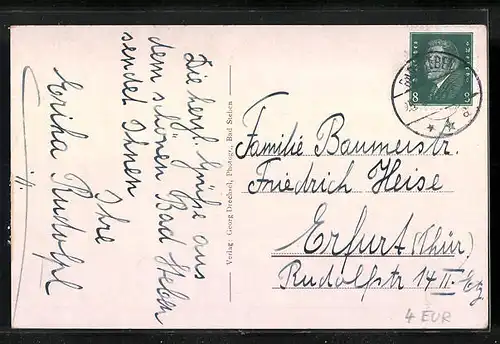 Die herzl. Grüße aus
dem schönen Bad Steben
sendet Ihnen
Ihre
Erika Rudolph
Verlag Georg Drechsel, Photogr., Bad Steben
8 8
Familie Baumeistr.
Friedrich Heise
Erfurt (Thür)
Rudolfstr 14 II. Etg
4 EUR